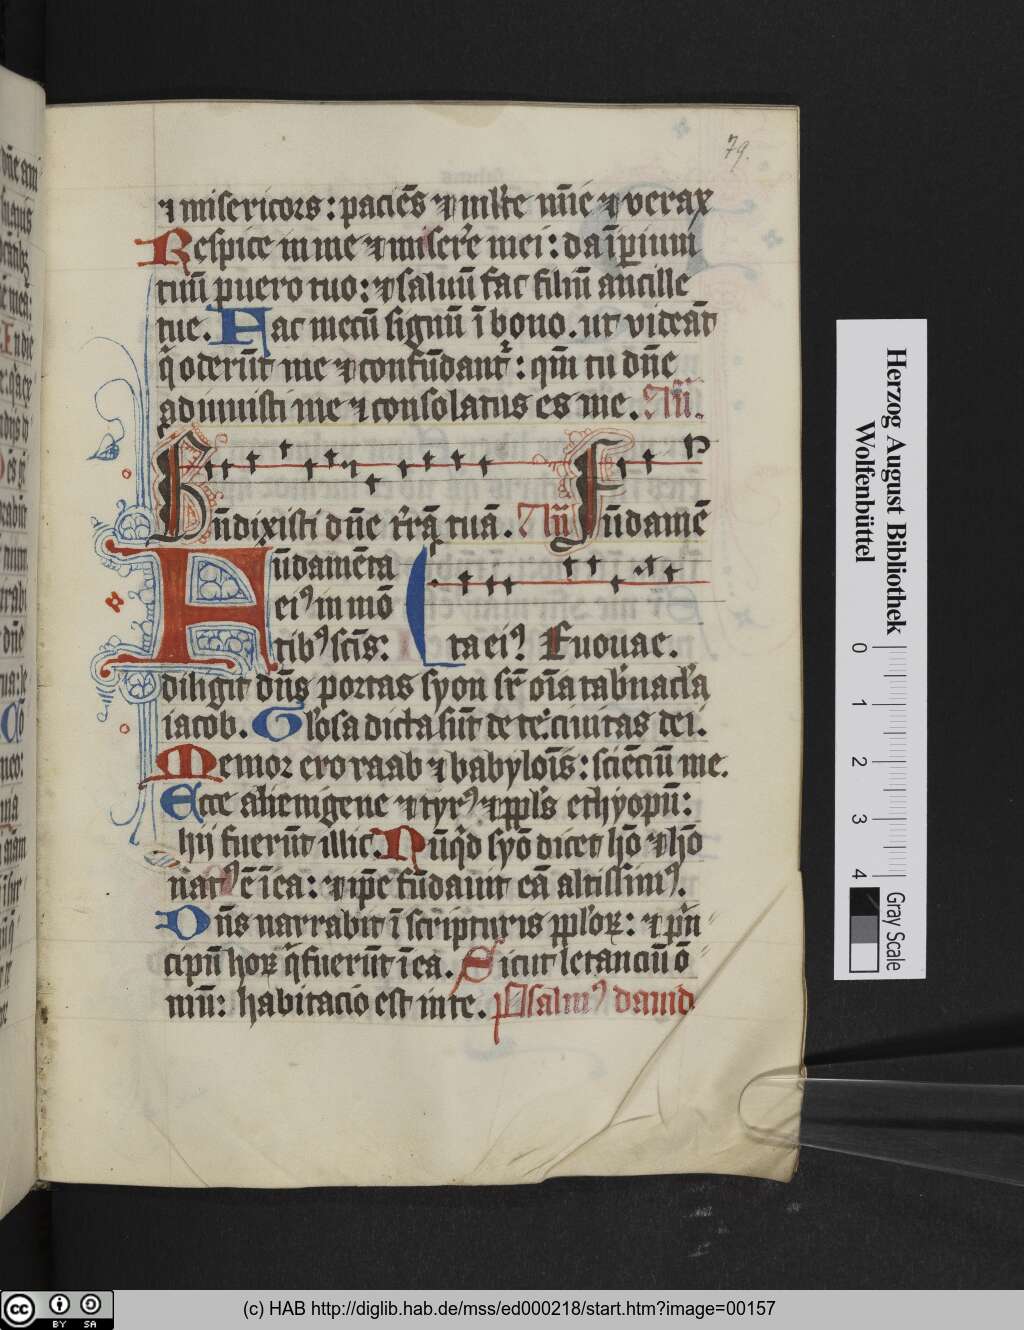 79.
⁊ misericors : paciēs ⁊ ml̓te mīe ⁊ verax
Respice in me ⁊ miser̓e mei : da īperium
tuū puero tuo : ⁊ saluū fac filiū ancille
tue. Fac mecū signū ī bono. ut videāt
q̄ oderūt me ⁊ confūdant᷑ : qm̄ tu dn̄e
adiuuisti me ⁊ consolatus es me. An̄.
Bn̄dixisti dn̄e tr̓ā tuā. An̄ Fūdamē
Fūdamēta
eiꝰ in mō
ta eiꝰ Euouae.
tibꝰ scīs:
diligit dn̄s portas syon sr̄ oīa tab̓nacl̓a
iacob. Gl̓osa dicta sūt de te : ciuitas dei.
Memor ero raab ⁊ babyloīs : sciēciū me.
Ecce alienigene ⁊ tyrꝰ ⁊ ppl̓s ethyopū :
hij fuerūt illic. Nūqd̓ syō dicet hō ⁊ hō
natꝰ ē ī ea : ⁊ ip̄e fūdauit eā altissimꝰ.
Dn̄s narrabit ī scripturis ppl̓oꝝ : ⁊ p̓n
cipū hoꝝ q̓ fuerūt ī ea. Sicut letanciū ō
niū : habitacio est in te. Psalmꝰ dauid
Herzog August Bibliothek
Wolfenbüttel
0 1 2 3 4
Gray Scale
cc BY SA
(c) HAB http://diglib.hab.de/mss/ed000218/start.htm?image=00157